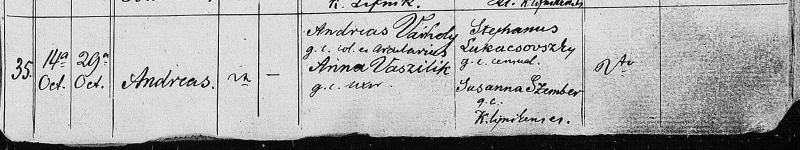 K. Lipnik.
35.
14ª Oct.
29ª Oct.
Andreas.
—
Andreas Vaiholy
g. c. col. et arcularius
Anna Vaszilik
g. c. uxor
Stephanus
Lukacsovszky
g. c.
Susanna Szember
g. c.
K. Lipnikenses.